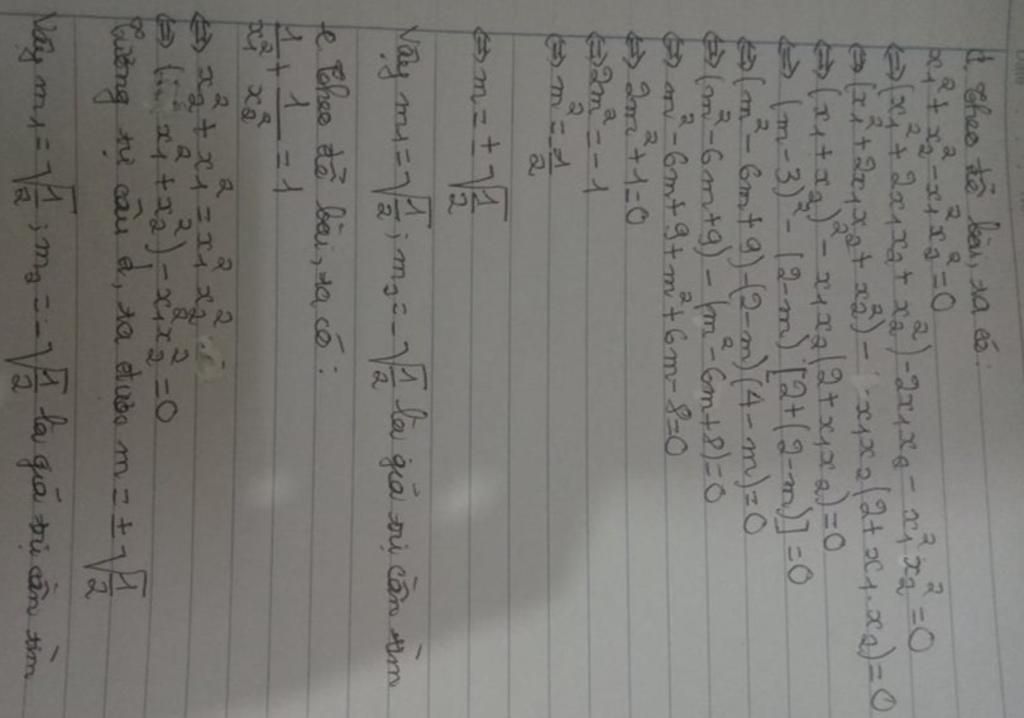 d. Theo đề bài, ta có:
x₁² + x₂² - x₁²x₂² = 0
⇔ (x₁² + 2x₁x₂ + x₂²) - 2x₁x₂ - x₁²x₂² = 0
⇔ (x₁² + 2x₁x₂ + x₂²) - x₁x₂(2 + x₁.x₂) = 0
⇔ (x₁ + x₂)² - x₁x₂(2 + x₁x₂) = 0
⇔ (m - 3)² - (2 - m)[2 + (2 - m)] = 0
⇔ (m² - 6m + 9) - (2 - m)(4 - m) = 0
⇔ (m² - 6m + 9) - (m² - 6m + 8) = 0
⇔ m² - 6m + 9 + m² + 6m - 8 = 0
⇔ 2m² + 1 = 0
⇔ 2m² = -1
⇔ m² = -1/2
⇔ m = ±√(1/2)
Vậy m₁ = √(1/2); m₂ = -√(1/2) là giá trị cần tìm
e. Theo đề bài, ta có:
1/x₁² + 1/x₂² = 1
⇔ x₂² + x₁² = x₁²x₂²
⇔ (x₁² + x₂²) - x₁²x₂² = 0
Tương tự câu d, ta được m = ±√(1/2)
Vậy m₁ = √(1/2); m₂ = -√(1/2) là giá trị cần tìm